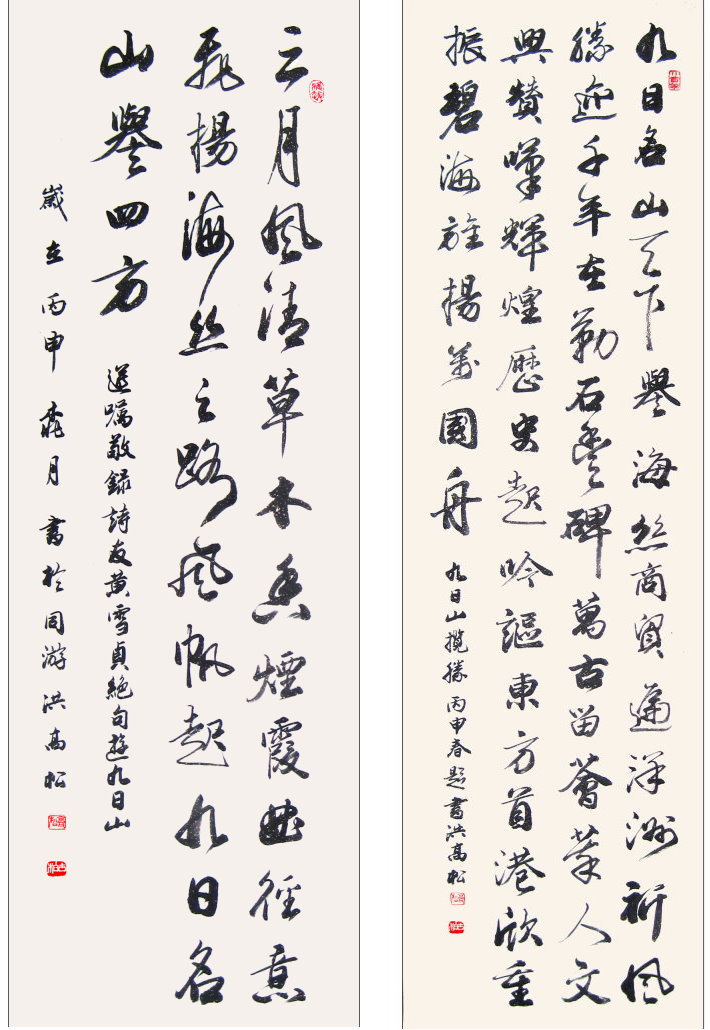 九日名山天下譽海絲商貿通洋洲祈風
勝迹千年在勒石豐碑萬古留薈萃人文
興贊嘆輝煌歷史起吟謳東方首港欣重
振碧海旌揚萬國舟 九日山攬勝 丙申春題書洪高松
三月風清草木香煙霞曲徑意
飛揚海絲之路風帆起九日名
山譽四方 遵囑敬錄詩友黃雪貞絕句遊九日山
歲在丙申桃月書於同游洪高松